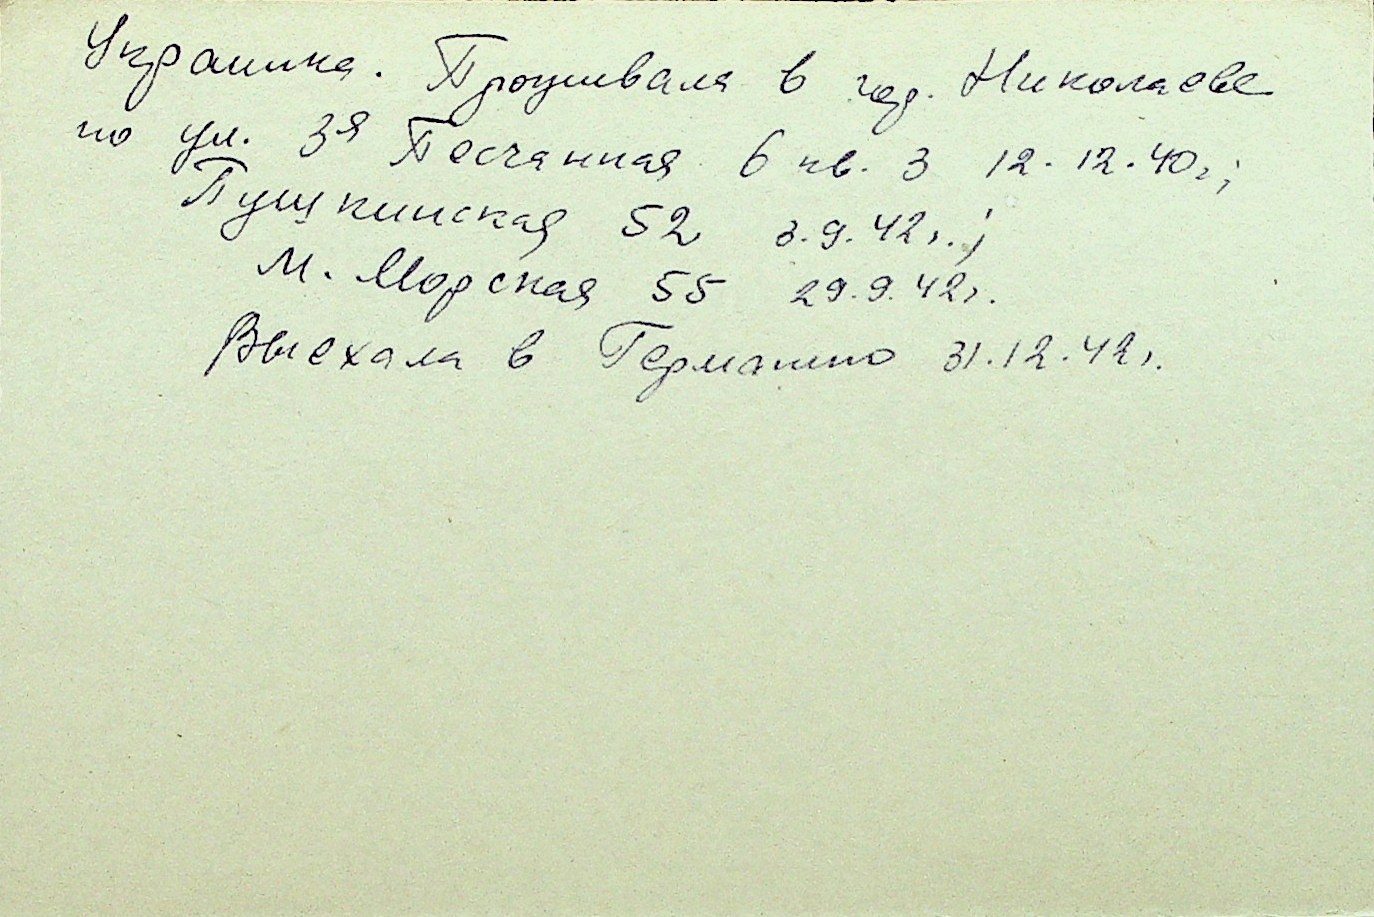 Украинка. Проживала в гор. Николаеве
по ул. 3я Песчанная 6 кв. 3 12.12.40г;
Пушкинская 52 3.9.42г.;
М. Морская 55 29.9.42г.
Выехала в Германию 31.12.42г.